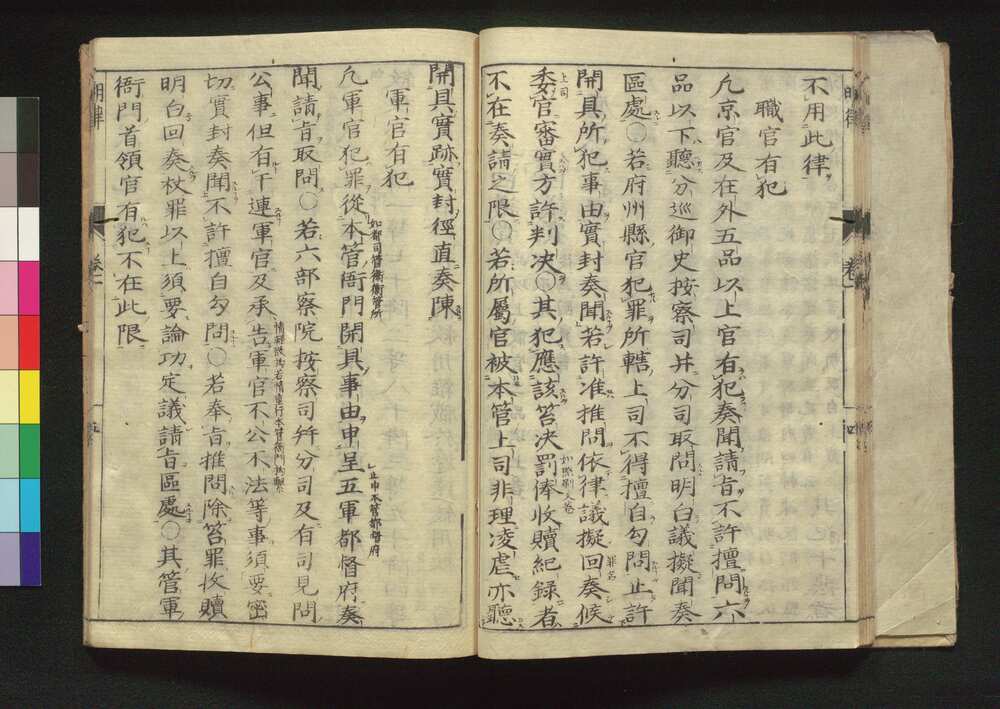 不用此律
職官有犯
凡京官及在外五品以上官有犯奏聞請旨不許擅問六
品以下聽分巡御史按察司并分司取問明白議擬聞奏
區處〇若府州縣官犯罪所轄上司不得擅自勾問止許
開具所犯事由實封奏聞若許准推問依律議擬回奏候
委官審實方許判决〇其犯應該笞决罰俸收贖紀録者
不在奏請之限〇若所屬官被本管上司非理凌虐亦聽
開具實跡實封徑直奏陳
軍官有犯
凡軍官犯罪從本管衙門開具事由申呈五軍都督府奏
聞請旨取問〇若六部察院按察司并分司及有司見問
公事但有干連軍官及承告軍官不公不法等事須要密
切實封奏聞不許擅自勾問〇若奉旨推問除笞罪收贖
明白回奏杖罪以上須要論功定議請旨區處〇其管軍
衙門首領官有犯不在此限
明律
卷一
四
明律
卷一
五